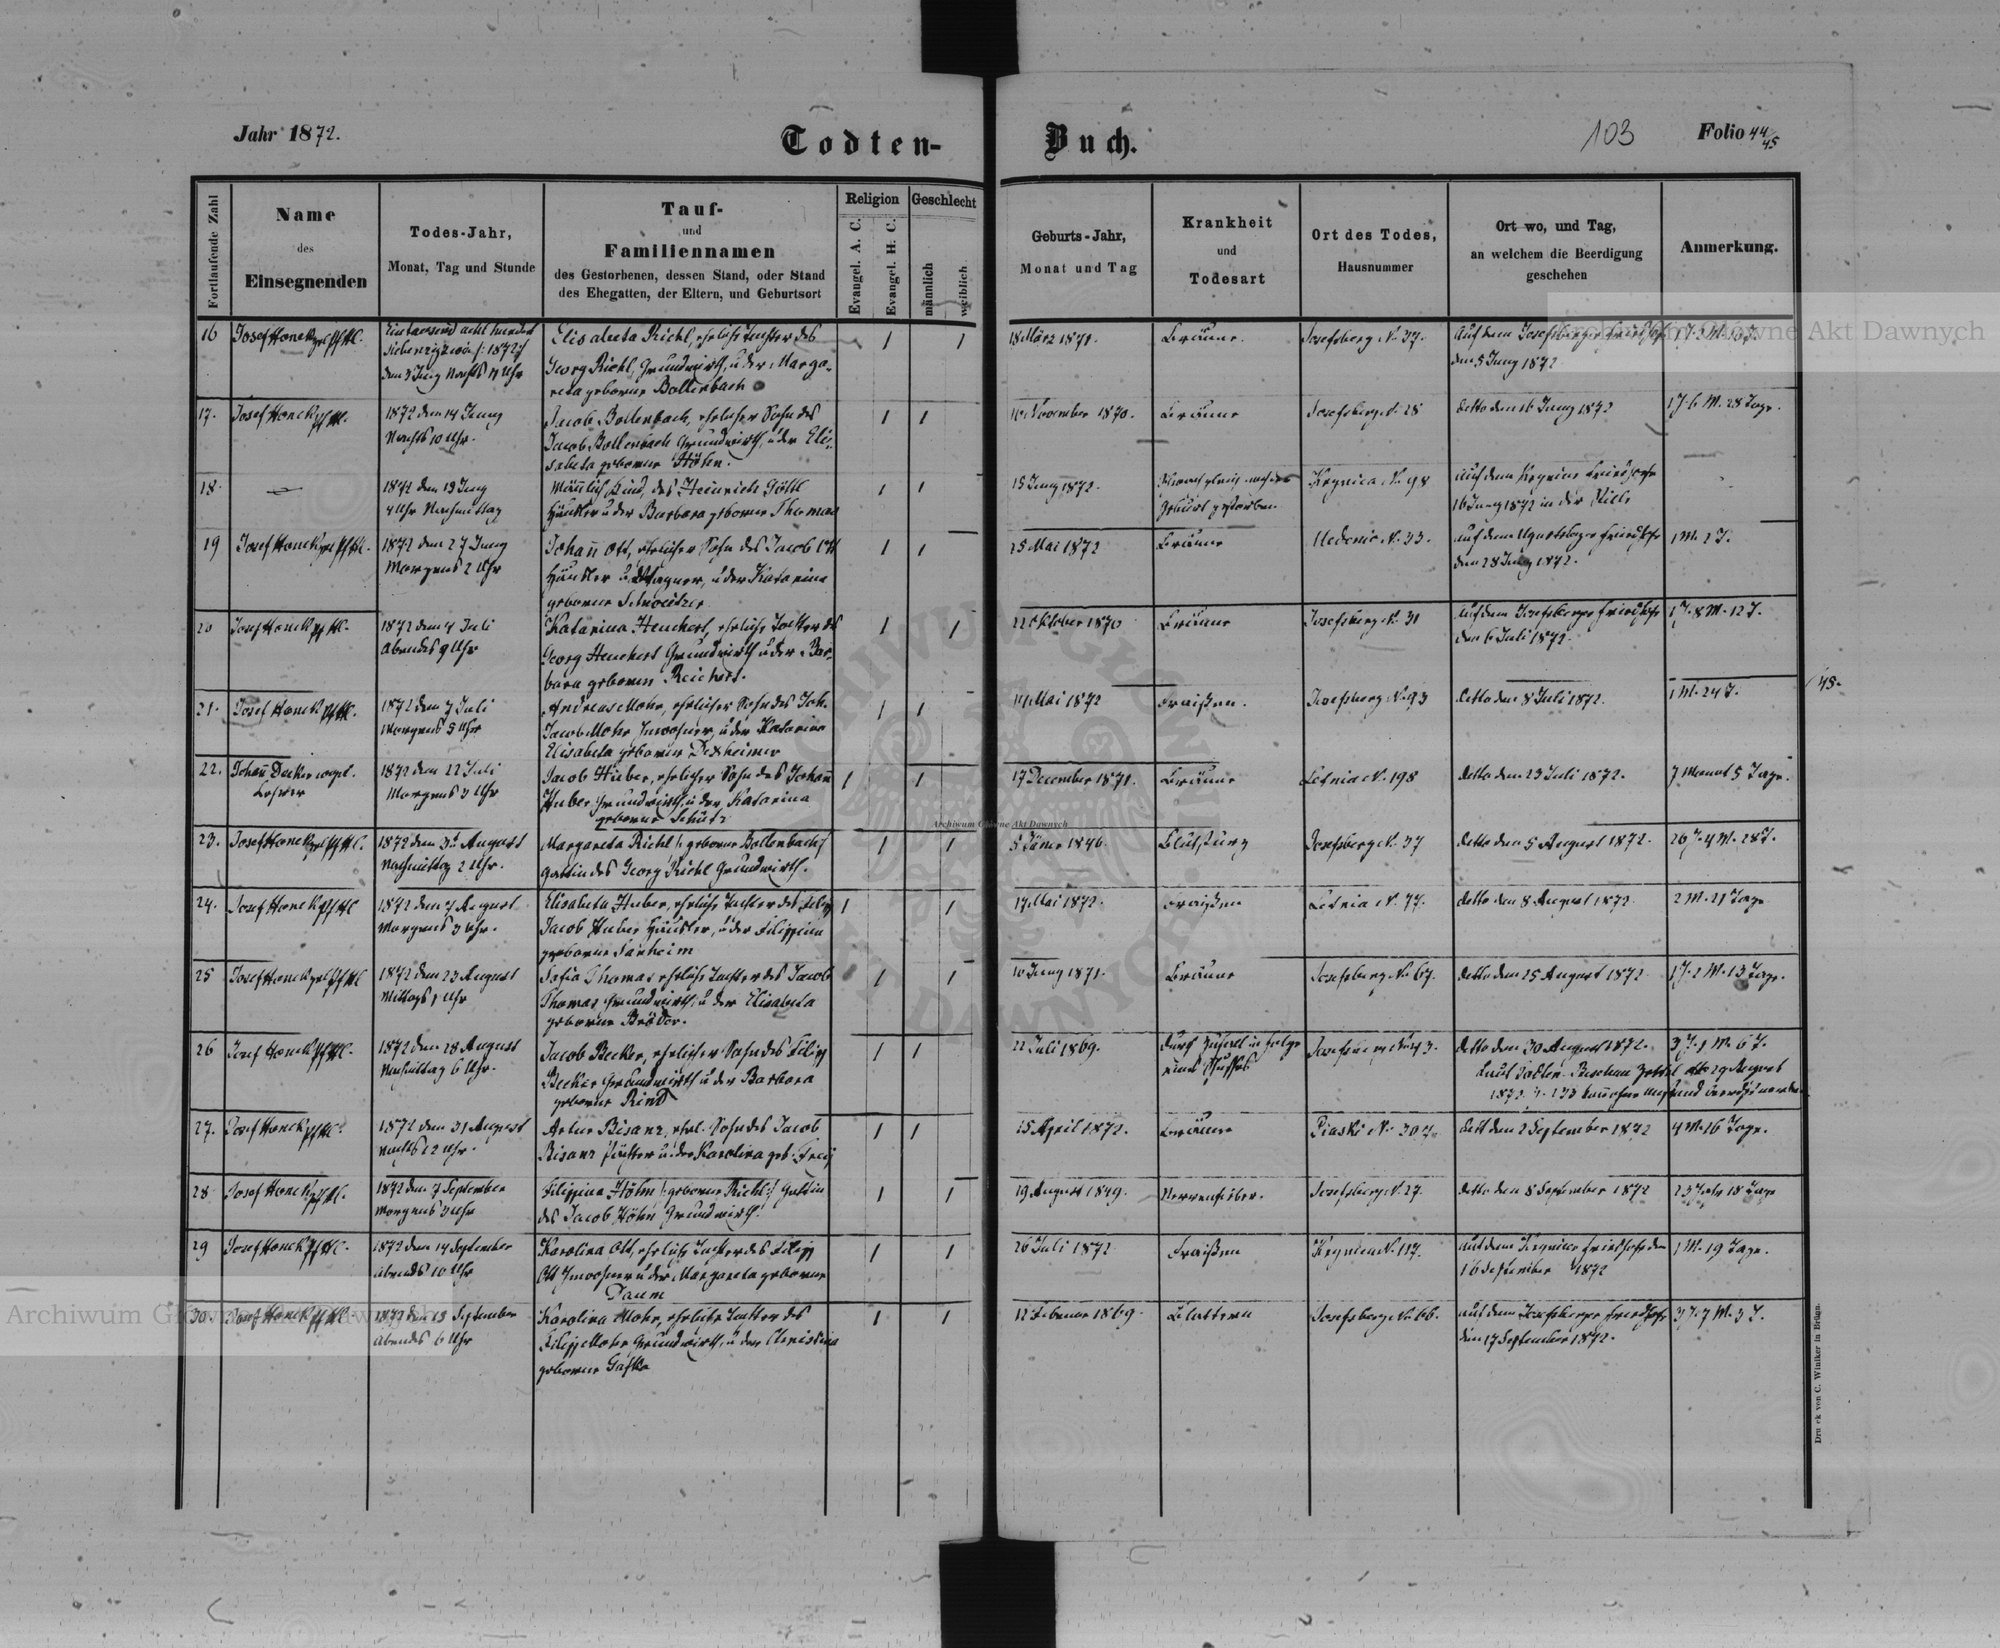 Jahr 1872.
Todten-
Buch.
103
Folio 44/45
Fortlaufende Zahl
Name
des
Einsegnenden
Todes-Jahr,
Monat, Tag und Stunde
Tauf-
und
Familiennamen
des Gestorbenen, dessen Stand, oder Stand
des Ehegatten, der Eltern, und Geburtsort
Religion
Evangel. A. C.
Evangel. H. C.
Geschlecht
männlich
weiblich
Geburts-Jahr,
Monat und Tag
Krankheit
und
Todesart
Ort des Todes,
Hausnummer
Ort wo, und Tag,
an welchem die Beerdigung
geschehen
Anmerkung.
16 Josef Honek
Ein tausend acht hundert
siebenzig zwei /: 1872 :/
den 3 Juny Nachts 11 Uhr
Elisabeta Richl, eheliche Tochter des
Georg Richl, Grundwirth, u der Marga-
reta geborene Bollenbach
1 1
18 März 1871.
Bräune.
Josefsberg N. 37.
Auf dem Josefsberger Friedhofe
den 5 Juny 1872
17. Josef Honek
1872 den 14 Juny
Nachts 10 Uhr.
Jacob Bollenbach, ehelicher Sohn des
Jacob Bollenbach Grundwirth, u der Eli-
sabeta geborene Höhn.
1 1
November 1870.
Bräune
Josefsberg N. 28
detto den 16 Juny 1872
1 J. 6 M. 28 Tage.
18.
1872 den 13 Juny
4 Uhr Nachmittag
Männlich Kind, des Heinrich Göttl
Häusler u der Barbara geborene Thomas
1 1
15 Juny 1872.
Geburt gestorben
Krynica N. 98
auf dem Krynicer Friedhofe
16 Juny 1872 in der Stille
19 Josef Honek
1872 den 27 Juny
Morgens 2 Uhr
Johann Ott, ehelicher Sohn des Jacob Ott
Häusler u. Wagner, u der Katarina
geborene
1 1
25 Mai 1872
Bräune
Medenic N. 33.
auf dem Friedhofe
den 28 Juny 1872.
1 M. 2 T.
20 Josef Honek
1872 den 4 Juli
Abends 9 Uhr
Katarina Heuchert, eheliche Tochter des
Georg Heuchert Grundwirth u der Bar-
bara geborene Reichert.
1 1
22 Oktober 1870
Bräune
Josefsberg N. 31
auf dem Josefsberger Friedhofe
den 6 Juli 1872.
1 J. 8 M. 12 T.
21. Josef Honek
1872 den 7 Juli
Morgens 5 Uhr
Andreas Mohr, ehelicher Sohn des Joh.
Jacob Mohr Inwohner, u der Katarina
Elisabeta geborene Dexheimer
1 1
14 Mai 1872
Fraißen.
Josefsberg N. 93
detto den 8 Juli 1872.
1 M. 24 T.
45.
22. Johann Decker evgel.
Lehrer
1872 den 22 Juli
Morgens 3 Uhr
Jacob Huber, ehelicher Sohn des Johann
Huber, Grundwirth, u der Katarina
geborene Schütz
1 1
17 December 1871.
Bräune
Letnia N. 198
detto den 23 Juli 1872.
7 Monat 5 Tage.
23. Josef Honek
1872 den 3t August
Nachmittag 2 Uhr.
Margareta Richl /: geborene Bollenbach :/
Gattin des Georg Richl Grundwirth.
1 1
5 Jäner 1846.
Blutsturz
Josefsberg N. 37
detto den 5 August 1872.
26 J. 4 M. 28 T.
24. Josef Honek
1872 den 7 August
Morgens 3 Uhr.
Elisabeta Huber, eheliche Tochter des Filip
Jacob Huber Häusler, u der Filippina
geborene Sanheim
1 1
17 Mai 1872.
Fraißen
Letnia N. 77.
detto den 8 August 1872
2 M. 21 Tage
25 Josef Honek
1872 den 23 August
Mittags 1 Uhr
Sofia Thomas eheliche Tochter des Jacob
Thomas Grundwirth, u der Elisabeta
geborene Bröder.
1 1
10 Juny 1871.
Bräune
Josefsberg N. 67.
detto den 25 August 1872
1 J. 2 M. 13 Tage.
26 Josef Honek
1872 den 28 August
Nachmittag 6 Uhr.
Jacob Becker, ehelicher Sohn des Filipp
Becker Grundwirth u der Barbara
geborene Rind
1 1
22 Juli 1869.
durch Zufall in Folge
eines
Josefsberg N. 43.
detto den 30 August 1872.
3 J. 1 M. 6 T.
Laut Todten-Beschau Zettel 29 August
27. Josef Honek
1872 den 31 August
Nachts 12 Uhr.
Artur Bisanz, ehel. Sohn des Jacob
Bisanz u der Karolina geb. Frey
1 1
15 April 1872.
Bräune
Piaski N. 307.
dett den 2 September 1872
4 M. 16 Tage.
28 Josef Honek
1872 den 7 September
Morgens 3 Uhr
Filippina Höhn /: geborene Richl :/ Gattin
des Jacob Höhn Grundwirth.
1 1
19 August 1849.
Nervenfieber.
Josefsberg N. 27.
detto den 8 September 1872
23 Jahr 18 Tage
29 Josef Honek
1872 den 14 September
abends 10 Uhr
Karolina Ott, eheliche Tochter des Filipp
Ott Inwohner u der Margareta geborene
Daum
1 1
26 Juli 1872
Fraißen
Krynica N. 117.
auf dem Krynicer Friedhofe den
16 September 1872
1 M. 19 Tage.
30. Josef Honek
1872 den 15 September
Abends 6 Uhr
Karolina Mohr, eheliche Tochter des
Filipp Mohr Grundwirth, u der Christina
geborene
1 1
12 Februar 1869.
Blattern
Josefsberg N. 66.
auf dem Josefsberger Friedhofe
den 17 September 1872.
3 J. 7 M. 3 T.
Druck von C. Winiker in Brünn.
Archiwum Główne Akt Dawnych
Archiwum Główne Akt Dawnych
Archiwum Główne Akt Dawnych
ARCHIWUM GŁÓWNE AKT DAWNYCH